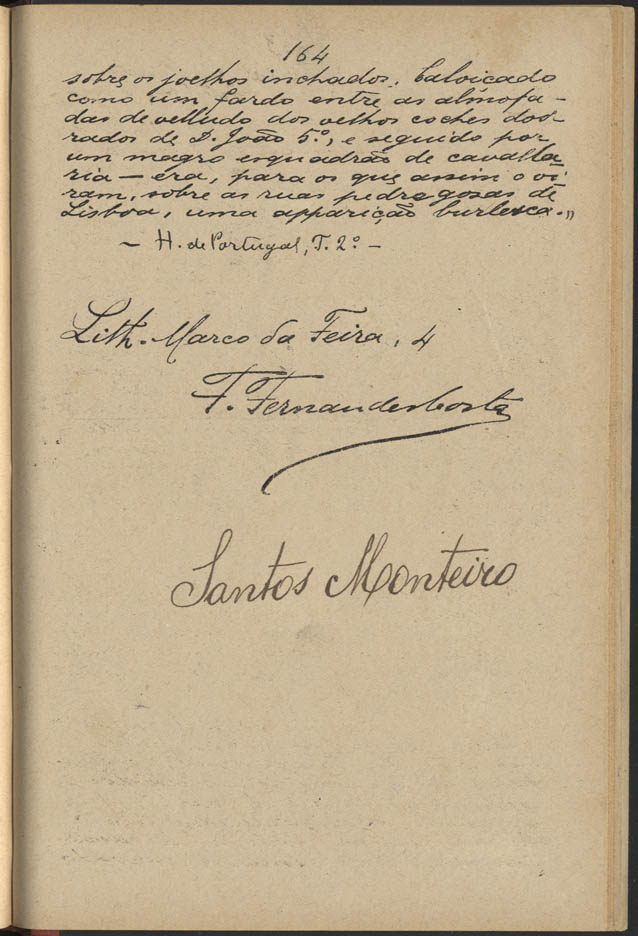 164
sobre os joelhos inchados. Baloiçado
como um fardo entre as almofa-
das de velludo dos velhos coches dou-
rados de D. João 5.º, e seguido por
um magro esquadrão de cavalla
ria — era, para os que assim o vi
ram, sobre as ruas pedregosas de
Lisboa, uma apparição burlesca.„
— H. de Portugal, T. 2.º —
Lith. Marco da Feira, 4
F. Fernandes Costa
Santos Monteiro